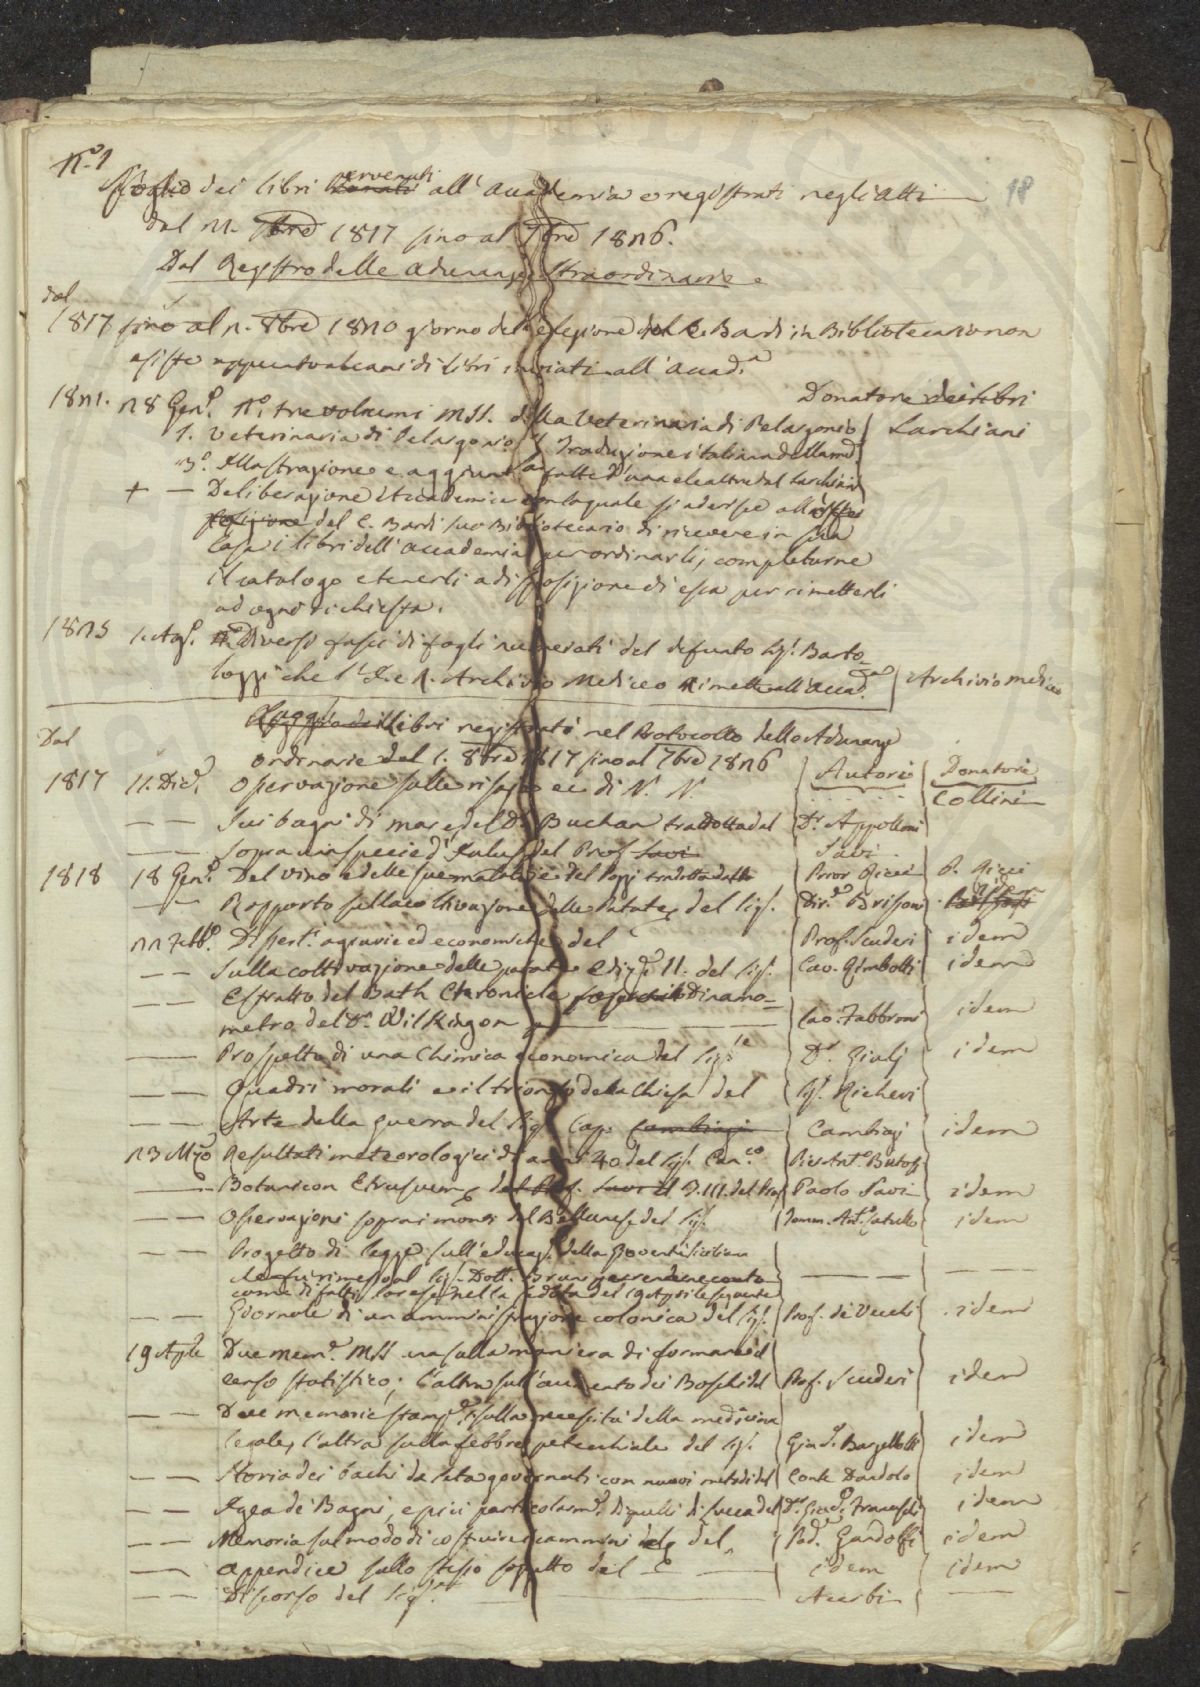 N.º 1
Foglio dei libri Donati pervenuti all'Accademia e registrati negli Atti 18
dal 1817 sino al 7bre 1826.
Dal Registro delle adunanze straordinarie
dal
1817 sino al 8bre 1820 giorno dell'elezione del C. Bardi in Bibliotecario non
esiste appunto alcuno di libri inviati all'Accad.a
Donatore dei libri
1821. 28 Gen.º N.º tre volumi MSS. della Veterinaria di Pelagonio Larchiani
1. Veterinaria di Pelagonio 2 Traduzione italiana della med.
3.º Illustrazione e aggiunte fatte d'una e le altre dal Larchiani
+ — Deliberazione Accademica con la quale si aderisce all'
del C. Bardi suo Bibliotecario di ricevere in sua
Casa i libri dell'Accademia per ordinarli, completarne
il catalogo e tenerli a disposizione di essa per rimetterli
ad ogni richiesta.
1825 1. Ag. Diversi fasci di fogli numerati del defunto Sig. Barto-
lozzi che l'I. e R. Archivio Medico rimette all'Accad.a Archivio medico
libri registrati nel Protocollo delle Adunanze
Dal
ordinarie dal 1. 8bre 1817 sino al 7bre 1826 Autori Donatori
1817 11. Dic. Osservazione sulle risaje ec di N. N. . . . . . Collini
— — Sui bagni di mare del D. Buchan tradotta dal D.r Appolloni
— — Sopra una specie d' del Prof. Savi Savi
1818 18 Gen.º Del vino e delle sue malattie del Pozzi tradotta dalla Prior Ricci P. Ricci
— — Rapporto sulla coltivazione delle Patate del Sig. Dir.e Brisson
22 Febb.º Dissert. agrarie ed economiche del Prof. Scuderi idem
— — Sulla coltivazione delle patate Ediz. II. del Sig. Cav. Gimbotti idem
— — Estratto del Bath Chronicle Dinamo-
metro del D.r Wilkinson Cav. Fabbroni idem
— — Prospetto di una Chimica economica del Sig.re D.r Giulj idem
— — Quadri morali e il trionfo della Chiesa del Sig. Richeri
— — Arte della guerra del Sig. Cap. Cambiagi Cambiagi idem
23 Mzo Resultati meteorologici di anni 40 del Sig. Can.co Pier Ant.
— — Botanicon Etruscum del Prof. Savi il T. III. del Prof. Paolo Savi idem
— — Osservazioni sopra i monti del Bellunese del Sig. Tomm. Ant. Catullo idem
— — Progetto di legge sull'educaz. della Gioventù Siciliana
che fu rimesso al Sig. Dott. Bruni per renderne conto — — — —
come di fatti lo rese nella seduta del 19 Aprile seguente
— — Giornale di un amministrazione colonica del Sig. Prof. de Vecchi idem
19 Aple Due mem. MSS una sulla maniera di formare il
censo statistico; l'altra sull'aumento dei Boschi del Prof. Scuderi idem
— — Due memorie stamp. 1 sulla necessità della medicina
legale, l'altra sulla febbre petecchiale del Sig. Giac. Barzellotti idem
— — Storia dei bachi da seta governati con nuovi metodi del Conte Dandolo idem
— — Igea de' Bagni, e più particolarm. di quelli di Lucca del D. Giac. Franceschi idem
— — Memoria sul modo di costruire i cammini del Pad. Gandolfi idem
— — Appendice sullo stesso soggetto del idem idem
— — Discorso del Sig.re Acerbi —